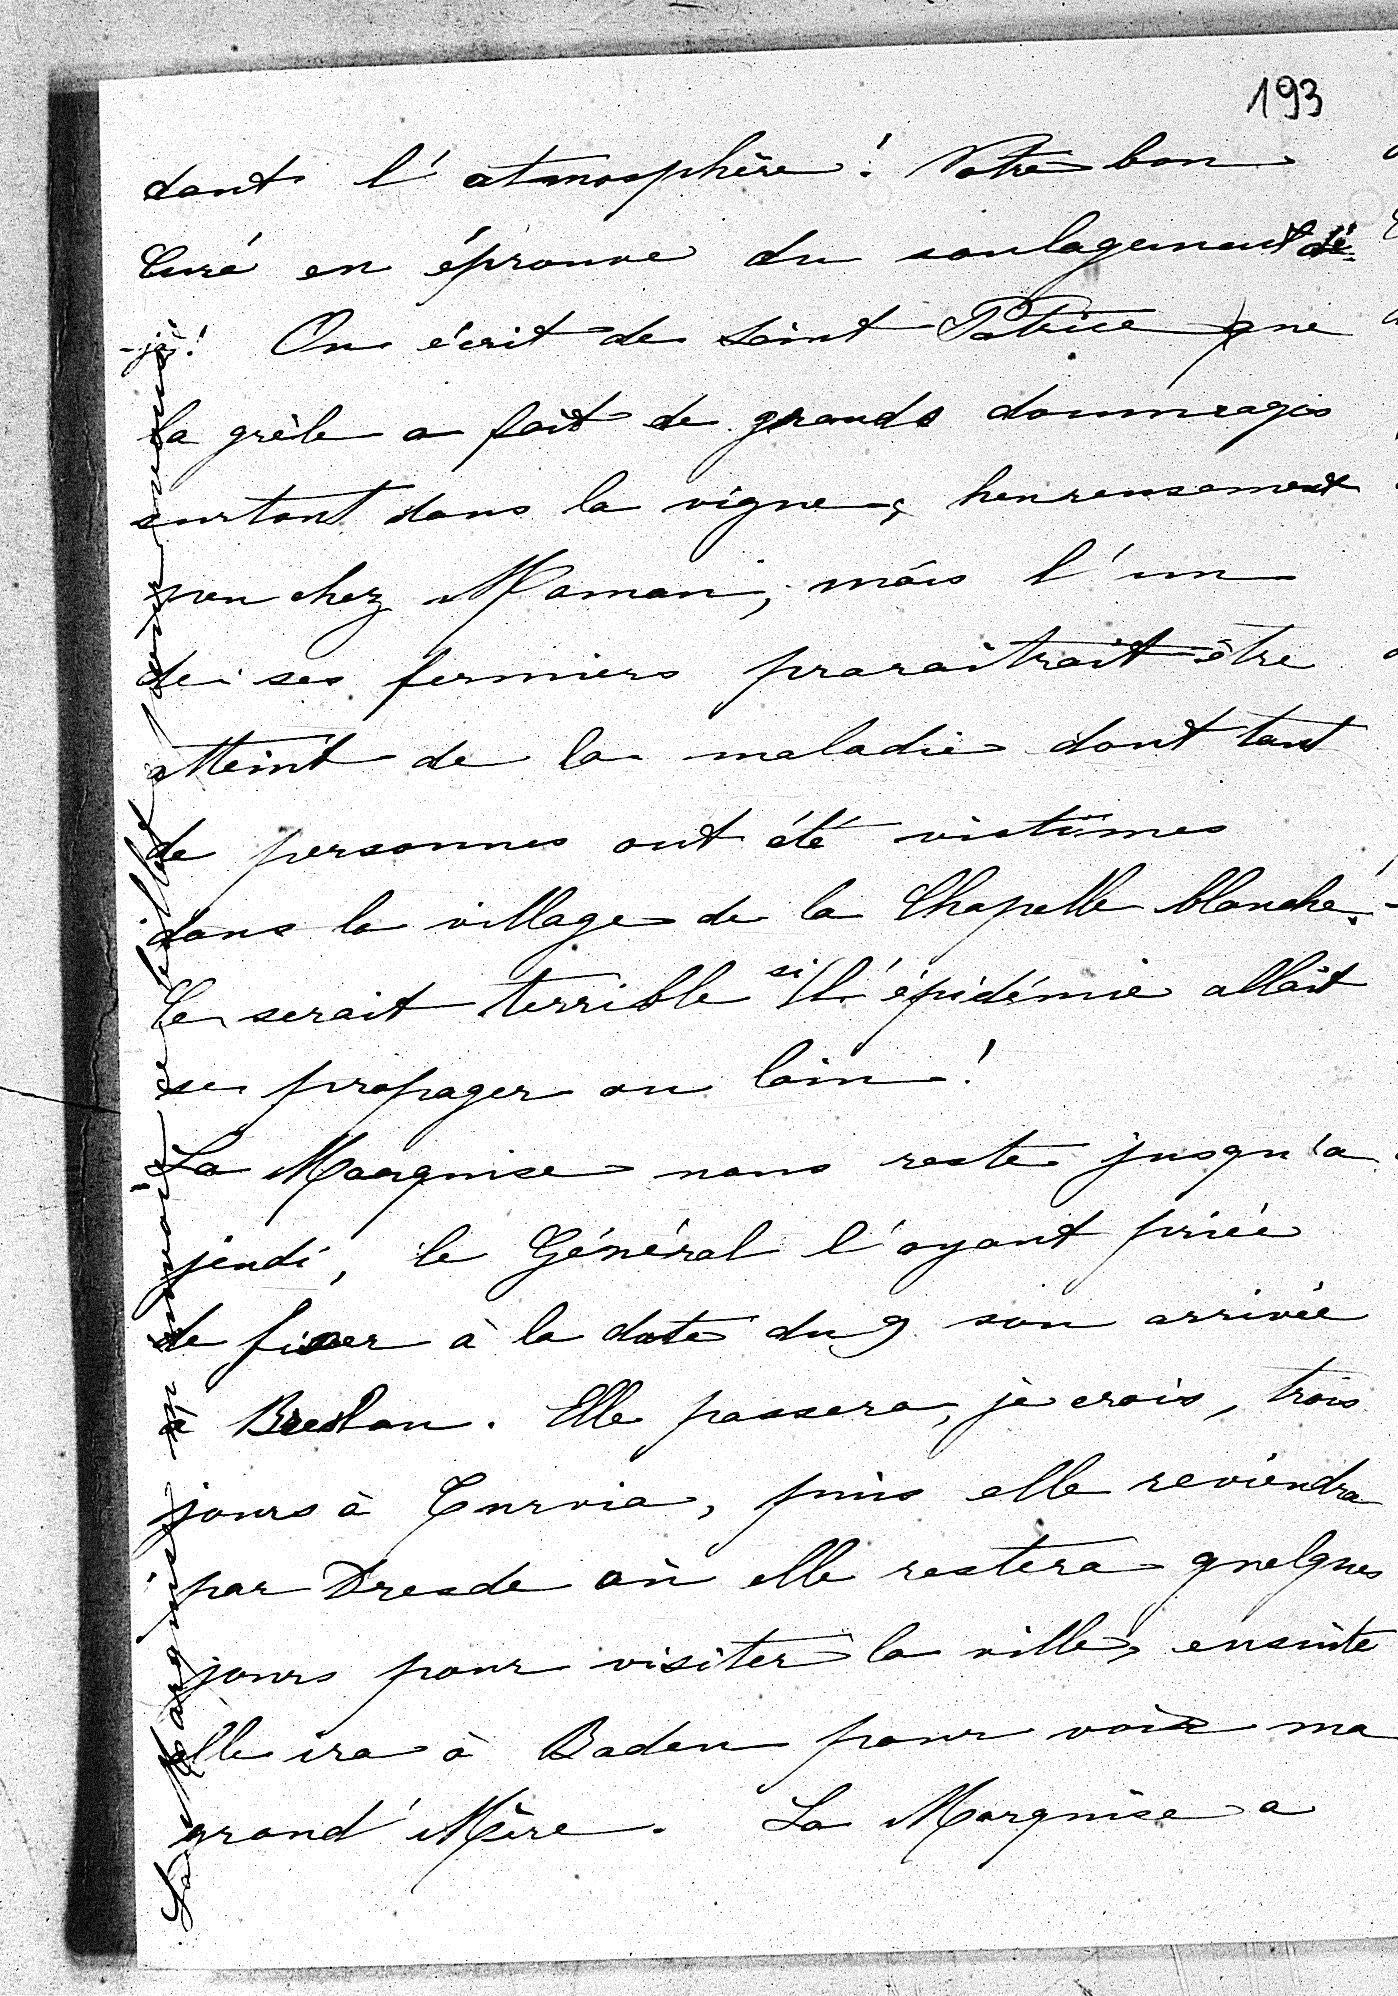 193
dant l'atmosphère! Votre bon
Curé en éprouve du soulagement dé-
-jà! On écrit de Saint Patrice que
la grêle a fait de grands dommages
surtout dans la vigne, heureusement
peu chez Maman, mais l'un
de ses fermiers paraîtrait être
atteint de la maladie dont tant
de personnes ont été victimes
dans le village de la Chapelle blanche!
Ce serait terrible si l'épidémie allait
se propager au loin!
La Marquise nous reste jusqu'à
jeudi, le Général l'ayant priée
de fixer à la date du 9 son arrivée
à Breslau. Elle passera, je crois, trois
jours à Turvia, puis elle reviendra
par Dresde où elle restera quelques
jours pour visiter la ville, ensuite
elle ira à Baden pour voir ma
grand'Mère. La Marquise a
La Marquise m'envoie ce billet pour vous